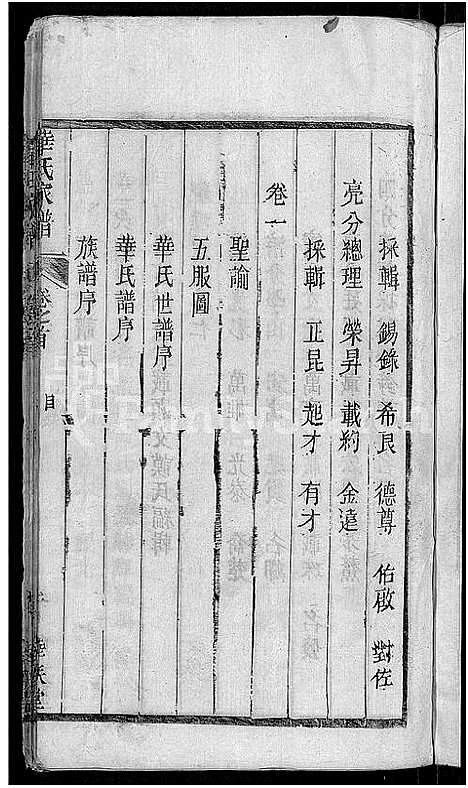 採輯 錫錄 希良 德尊 佑啟 對佐
亮分總理 榮昇 載約 金遠
採輯 正昆 起才 有才
卷一
聖諭
五服圖
華氏世譜序
華氏譜序
族譜序
華氏家譜 卷之首 目